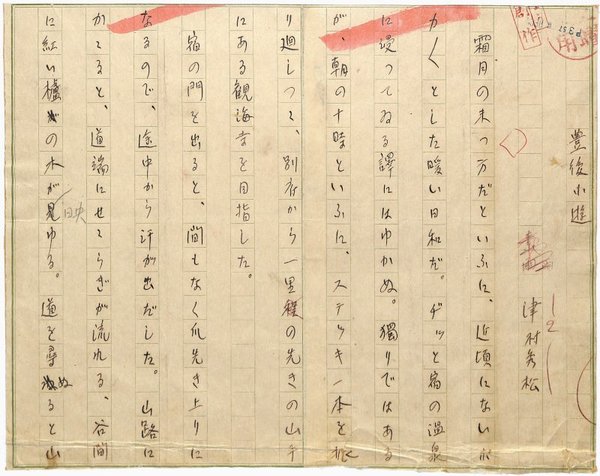 豊後小遊
津村秀松
霜月の末つ方だといふに、近頃にないポ
カ〱とした暖い日和だ。ヂッと宿の温泉
に浸つてゐる譯にはゆかぬ。獨りではある
が、朝の十時といふに、ステッキ一本を振
り廻しつゝ、別府から一里程の先きの山手
にある観海寺を目指した。
宿の門を出ると、間もなく爪先き上りに
なるので、途中から汗が出だした。山路に
かゝると、道端にせゝらぎが流れる、谷間
に紅い櫨の木が見ゆる。道を尋ぬると山